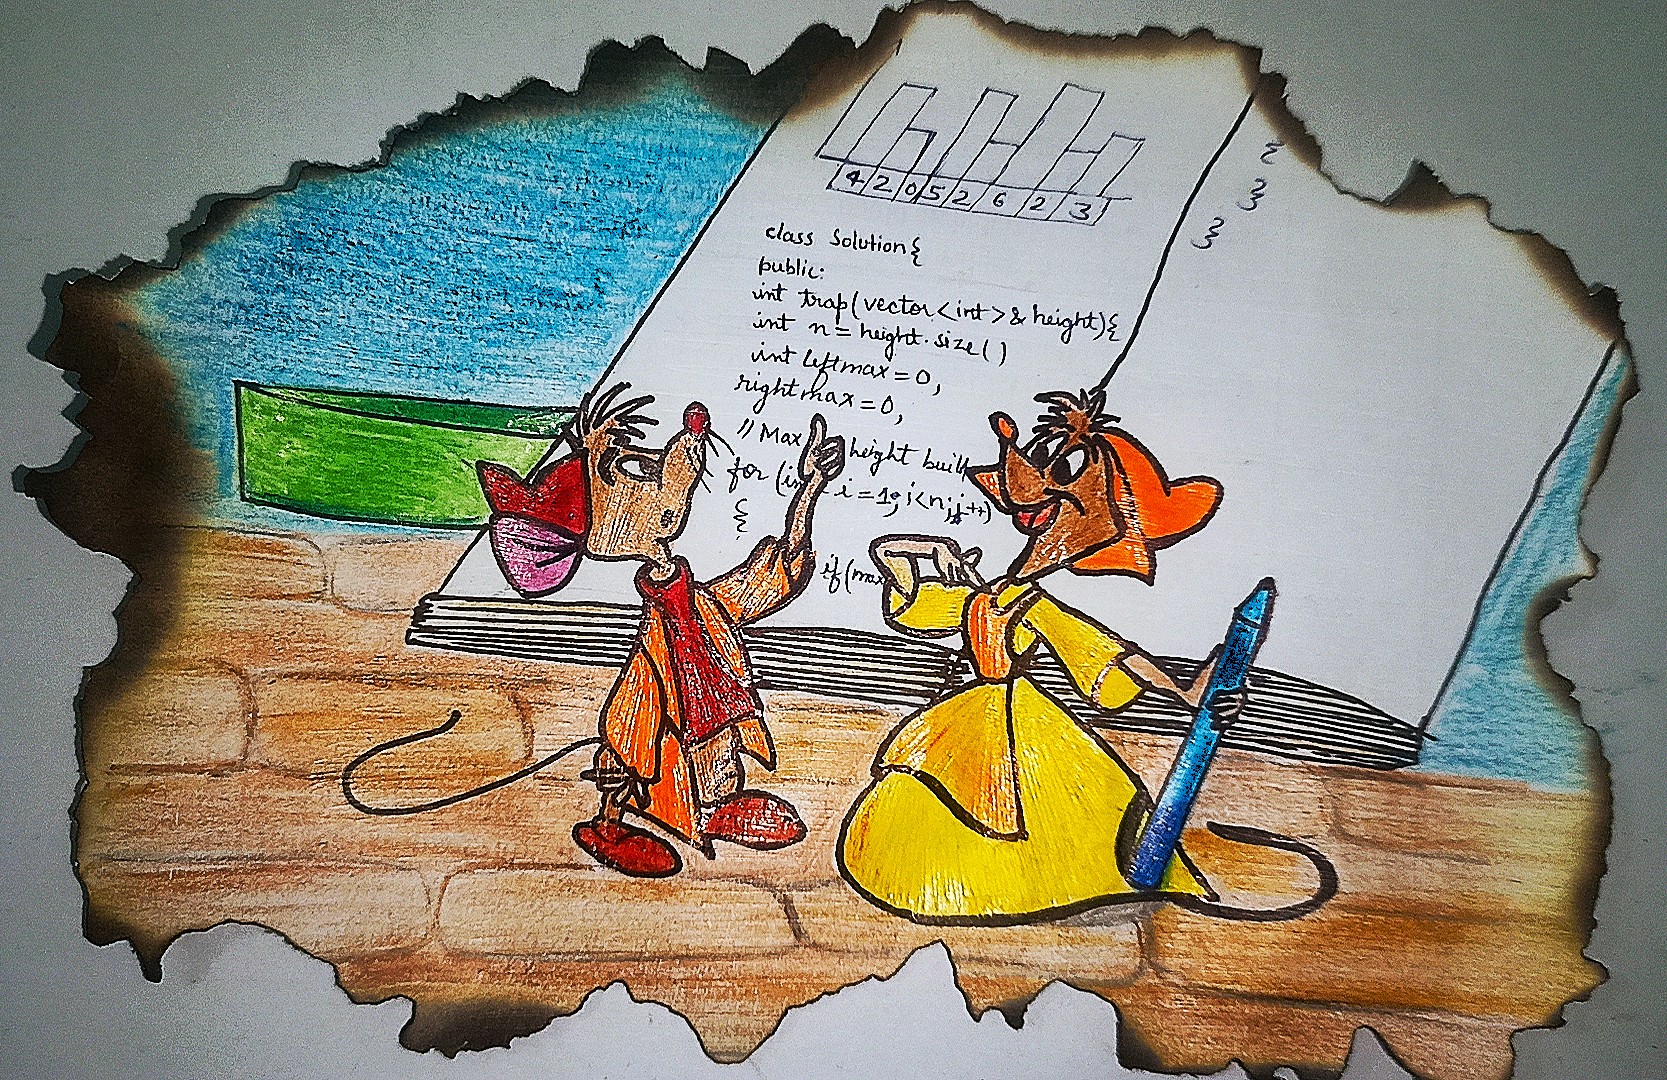 4 2 0 5 2 6 2 3
class Solution{
public:
int trap(vector<int>& height){
int n = height.size()
int leftmax = 0,
rightmax = 0,
// Max height built
for (in i = 1; i<n; i++)
{
if (max
{
}
}